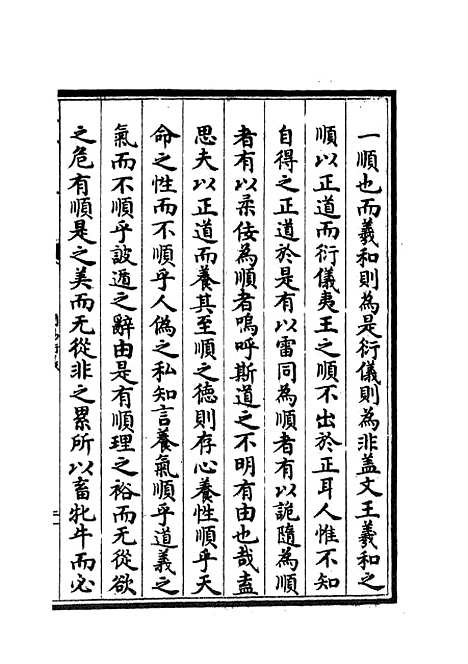 一順也而羲和則為是衍儀則為非盖文王羲和之
順以正道而衍儀夷王之順不出於正耳人惟不知
自得之正道於是有以雷同為順者有以詭隨為順
者有以柔佞為順者嗚呼斯道之不明有由也哉盍
思夫以正道而養其至順之德則存心養性順乎天
命之性而不順乎人偽之私知言養氣順乎道義之
氣而不順乎詖遁之辭由是有順理之裕而无從欲
之危有順是之美而无從非之累所以畜牝牛而必